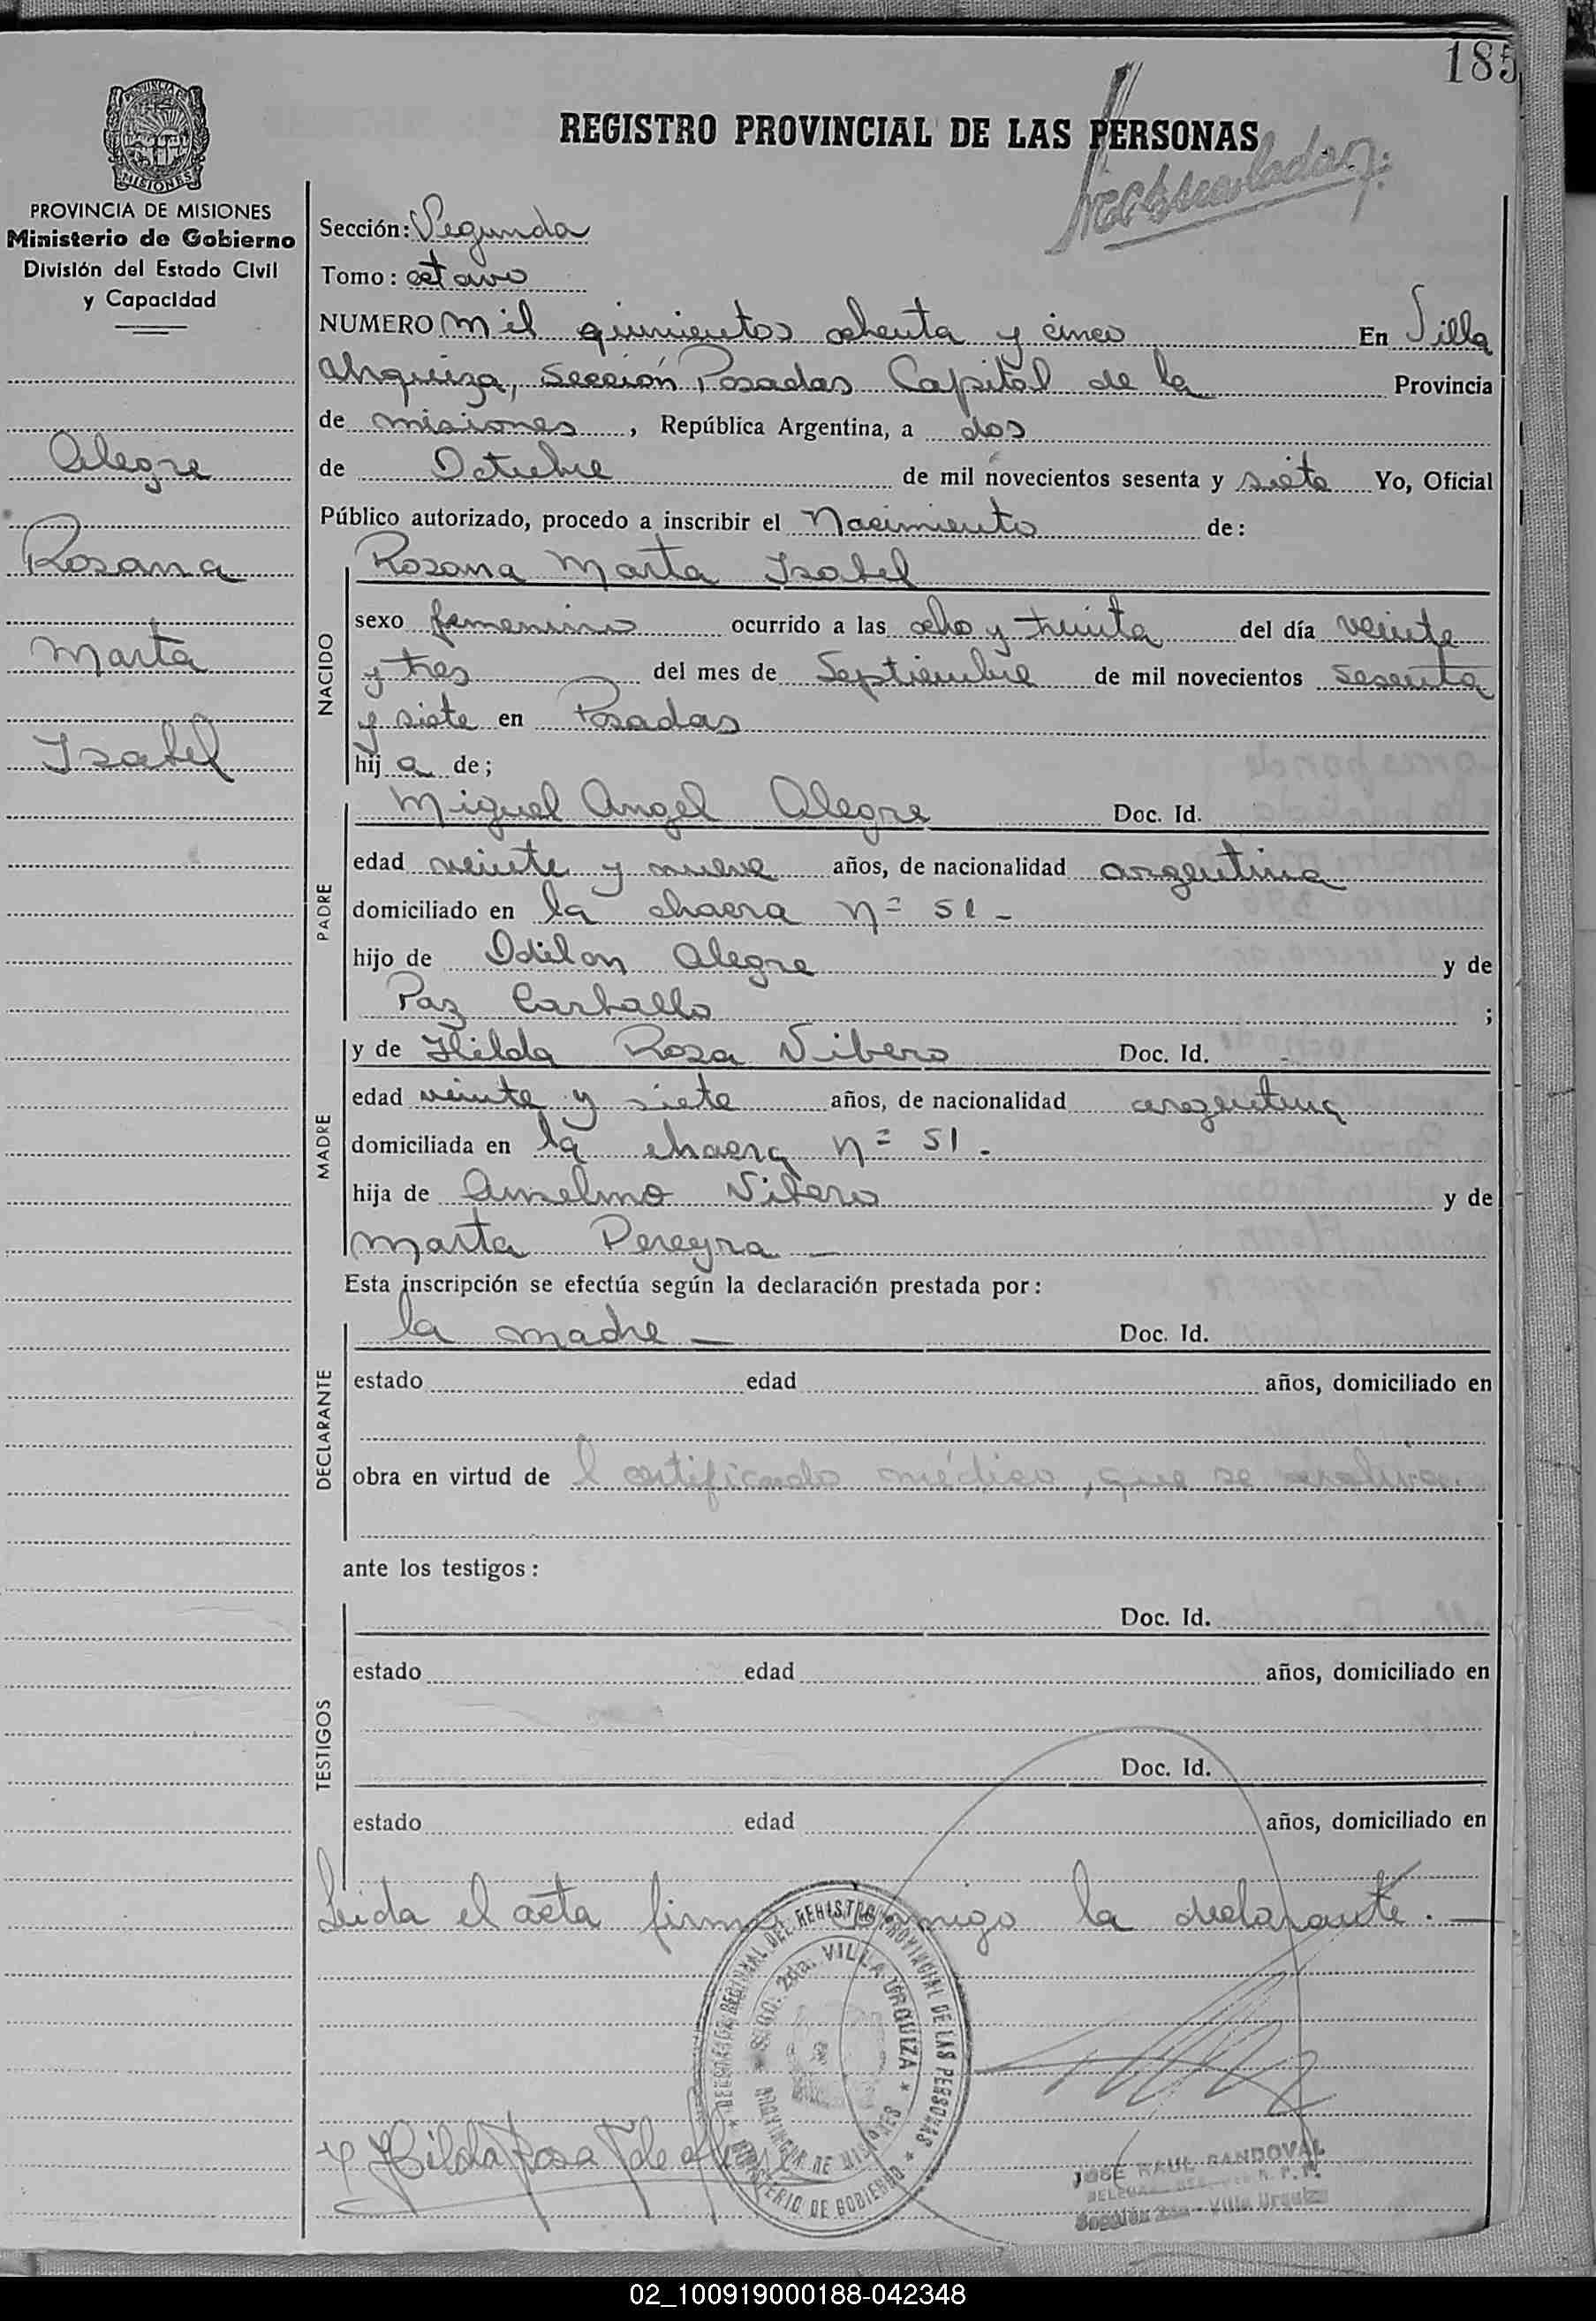 185
REGISTRO PROVINCIAL DE LAS PERSONAS
PROVINCIA DE MISIONES
Ministerio de Gobierno
División del Estado Civil
y Capacidad
Alegre
Rosana
Marta
Isabel
Sección: Segunda
Tomo: octavo
NUMERO mil quinientos ochenta y cinco En Villa
Urquiza, Sección Posadas Capital de la Provincia
de misiones, República Argentina, a dos
de Octubre de mil novecientos sesenta y siete Yo, Oficial
Público autorizado, procedo a inscribir el Nacimiento de:
NACIDO
Rosana Marta Isabel
sexo femenino ocurrido a las ocho y treinta del día veinte
y tres del mes de Septiembre de mil novecientos sesenta
y siete en Posadas
hij a de;
PADRE
Miguel Angel Alegre Doc. Id.
edad veinte y nueve años, de nacionalidad argentina
domiciliado en la chacra nº 51 -
hijo de Odilon Alegre y de
Paz Carballo ;
MADRE
y de Hilda Rosa Vibero Doc. Id.
edad veinte y siete años, de nacionalidad argentina
domiciliada en la chacra nº 51 -
hija de Anselmo Vibero y de
Marta Pereyra —
Esta inscripción se efectúa según la declaración prestada por:
DECLARANTE
la madre — Doc. Id.
estado edad años, domiciliado en
obra en virtud de l certificado médico, que se archiva.
ante los testigos:
TESTIGOS
Doc. Id.
estado edad años, domiciliado en
Doc. Id.
estado edad años, domiciliado en
Leida el acta firma conmigo la declarante. —
DELEGACION REGIONAL DEL REGISTRO PROVINCIAL DE LAS PERSONAS
SECC. 2da. VILLA URQUIZA
PROVINCIA DE MISIONES
MINISTERIO DE GOBIERNO
Hilda Rosa V de Alegre
JOSE RAUL SANDOVAL
Sección 2da - Villa Urquiza
02_100919000188-042348